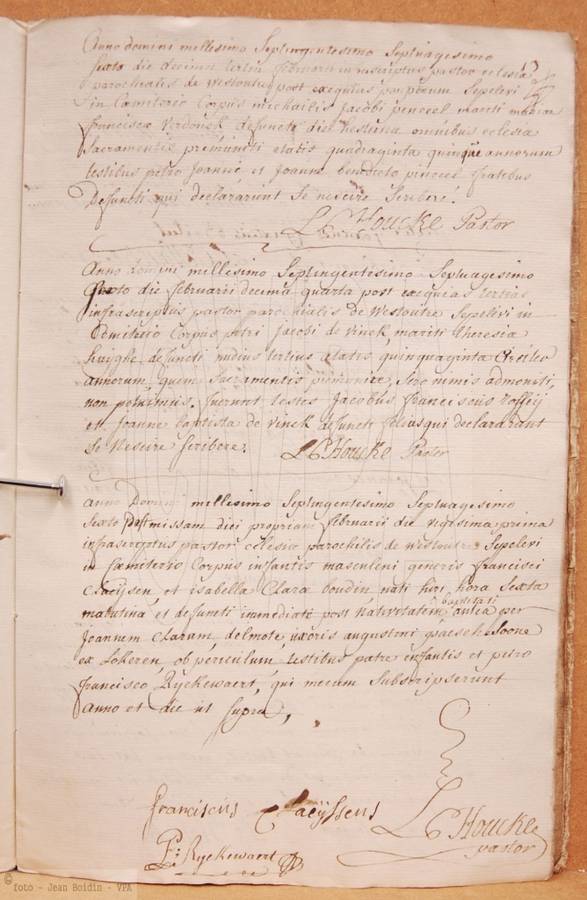 Anno domini millesimo Septingentesimo Septuagesimo
sexto die decima tertia februarii infrascriptus pastor eclesia
parochialis de Westoutre post exequias pauperum Sepelivi
in Cœmiterio Corpus michaelis Jacobi mariti
francisca Verdonck defuncti die hesterna omnibus eclesia
Sacramentis premuniti etatis quadraginta quinque annorum
testibus petro Joanne et Joanne benedicto fratribus
Defuncti qui declararunt se nescire scribere.
L C Houcke Pastor
13
Anno domini millesimo Septingentesimo Septuagesimo
sexto die februarii decima quarta post exequias tertias
infrascriptus pastor parochialis de Westoutre Sepelivi in
Cœmiterio Corpus petri Jacobi de vinck, mariti theresia
huijghe defuncti nudius tertius etatis quinquaginta Circiter
annorum quem Sacramentis premunire, sero nimis admoniti,
non potuimus. fuerunt testes Jacobus franciscus
et Joannes baptista de vinck defuncti filius qui declararunt
se Nescire scribere.
L C Houcke Pastor
Anno Domini millesimo Septingentesimo Septuagesimo
sexto post missam diei propriam februarii die vigesima prima
infrascriptus pastor eclesia parochilis de Westoutre Sepelivi
in Cœmiterio Corpus infantis masculini generis francisci
Claeijsen et isabella Clara boudin nati heri hora sexta
matutina et defuncti immediatè post nativitatem, antea baptisati per
Joannam Claram delmote, uxoris augustini
ex Lokeren, ob periculum, testibus patre infantis et petro
francisco Rijckewaert, qui mecum subscripserunt
Anno et die ut supra,
franciscus Claeijssens
L C Houcke
pastor
P: Rijckewaert
© foto - Jean Boidin - VPA